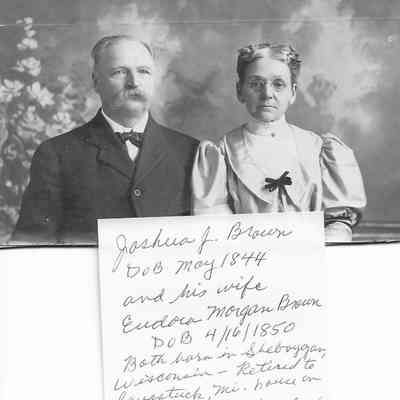 Joshua J. Brown
DoB May 1844
and his wife
Eudora Morgan Brown
DoB 4/16/1850
Both born in Sheboygan,
Wisconsin - Retired to
Mi. house on